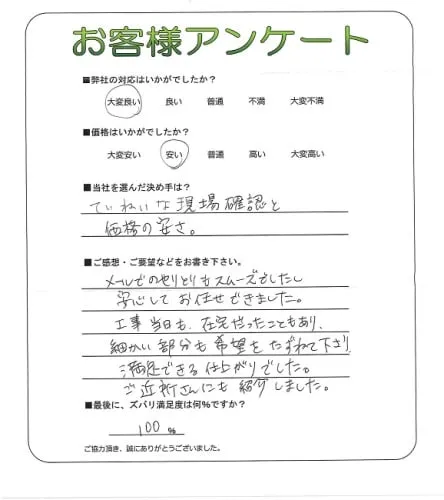 お客様アンケート
■弊社の対応はいかがでしたか?
大変良い 良い 普通 不満 大変不満
■価格はいかがでしたか?
大変安い 安い 普通 高い 大変高い
■当社を選んだ決め手は?
ていねいな現場確認と
価格の安さ。
■ご感想・ご要望などをお書き下さい。
メールでのやりとりもスムーズでしたし
安心してお任せできました。
工事当日も、在宅だったこともあり、
細かい部分も希望をたずねて下さり
満足できる仕上がりでした。
ご近所さんにも紹介しました。
■最後に、ズバリ満足度は何%ですか?
100 %
ご協力頂き、誠にありがとうございました。